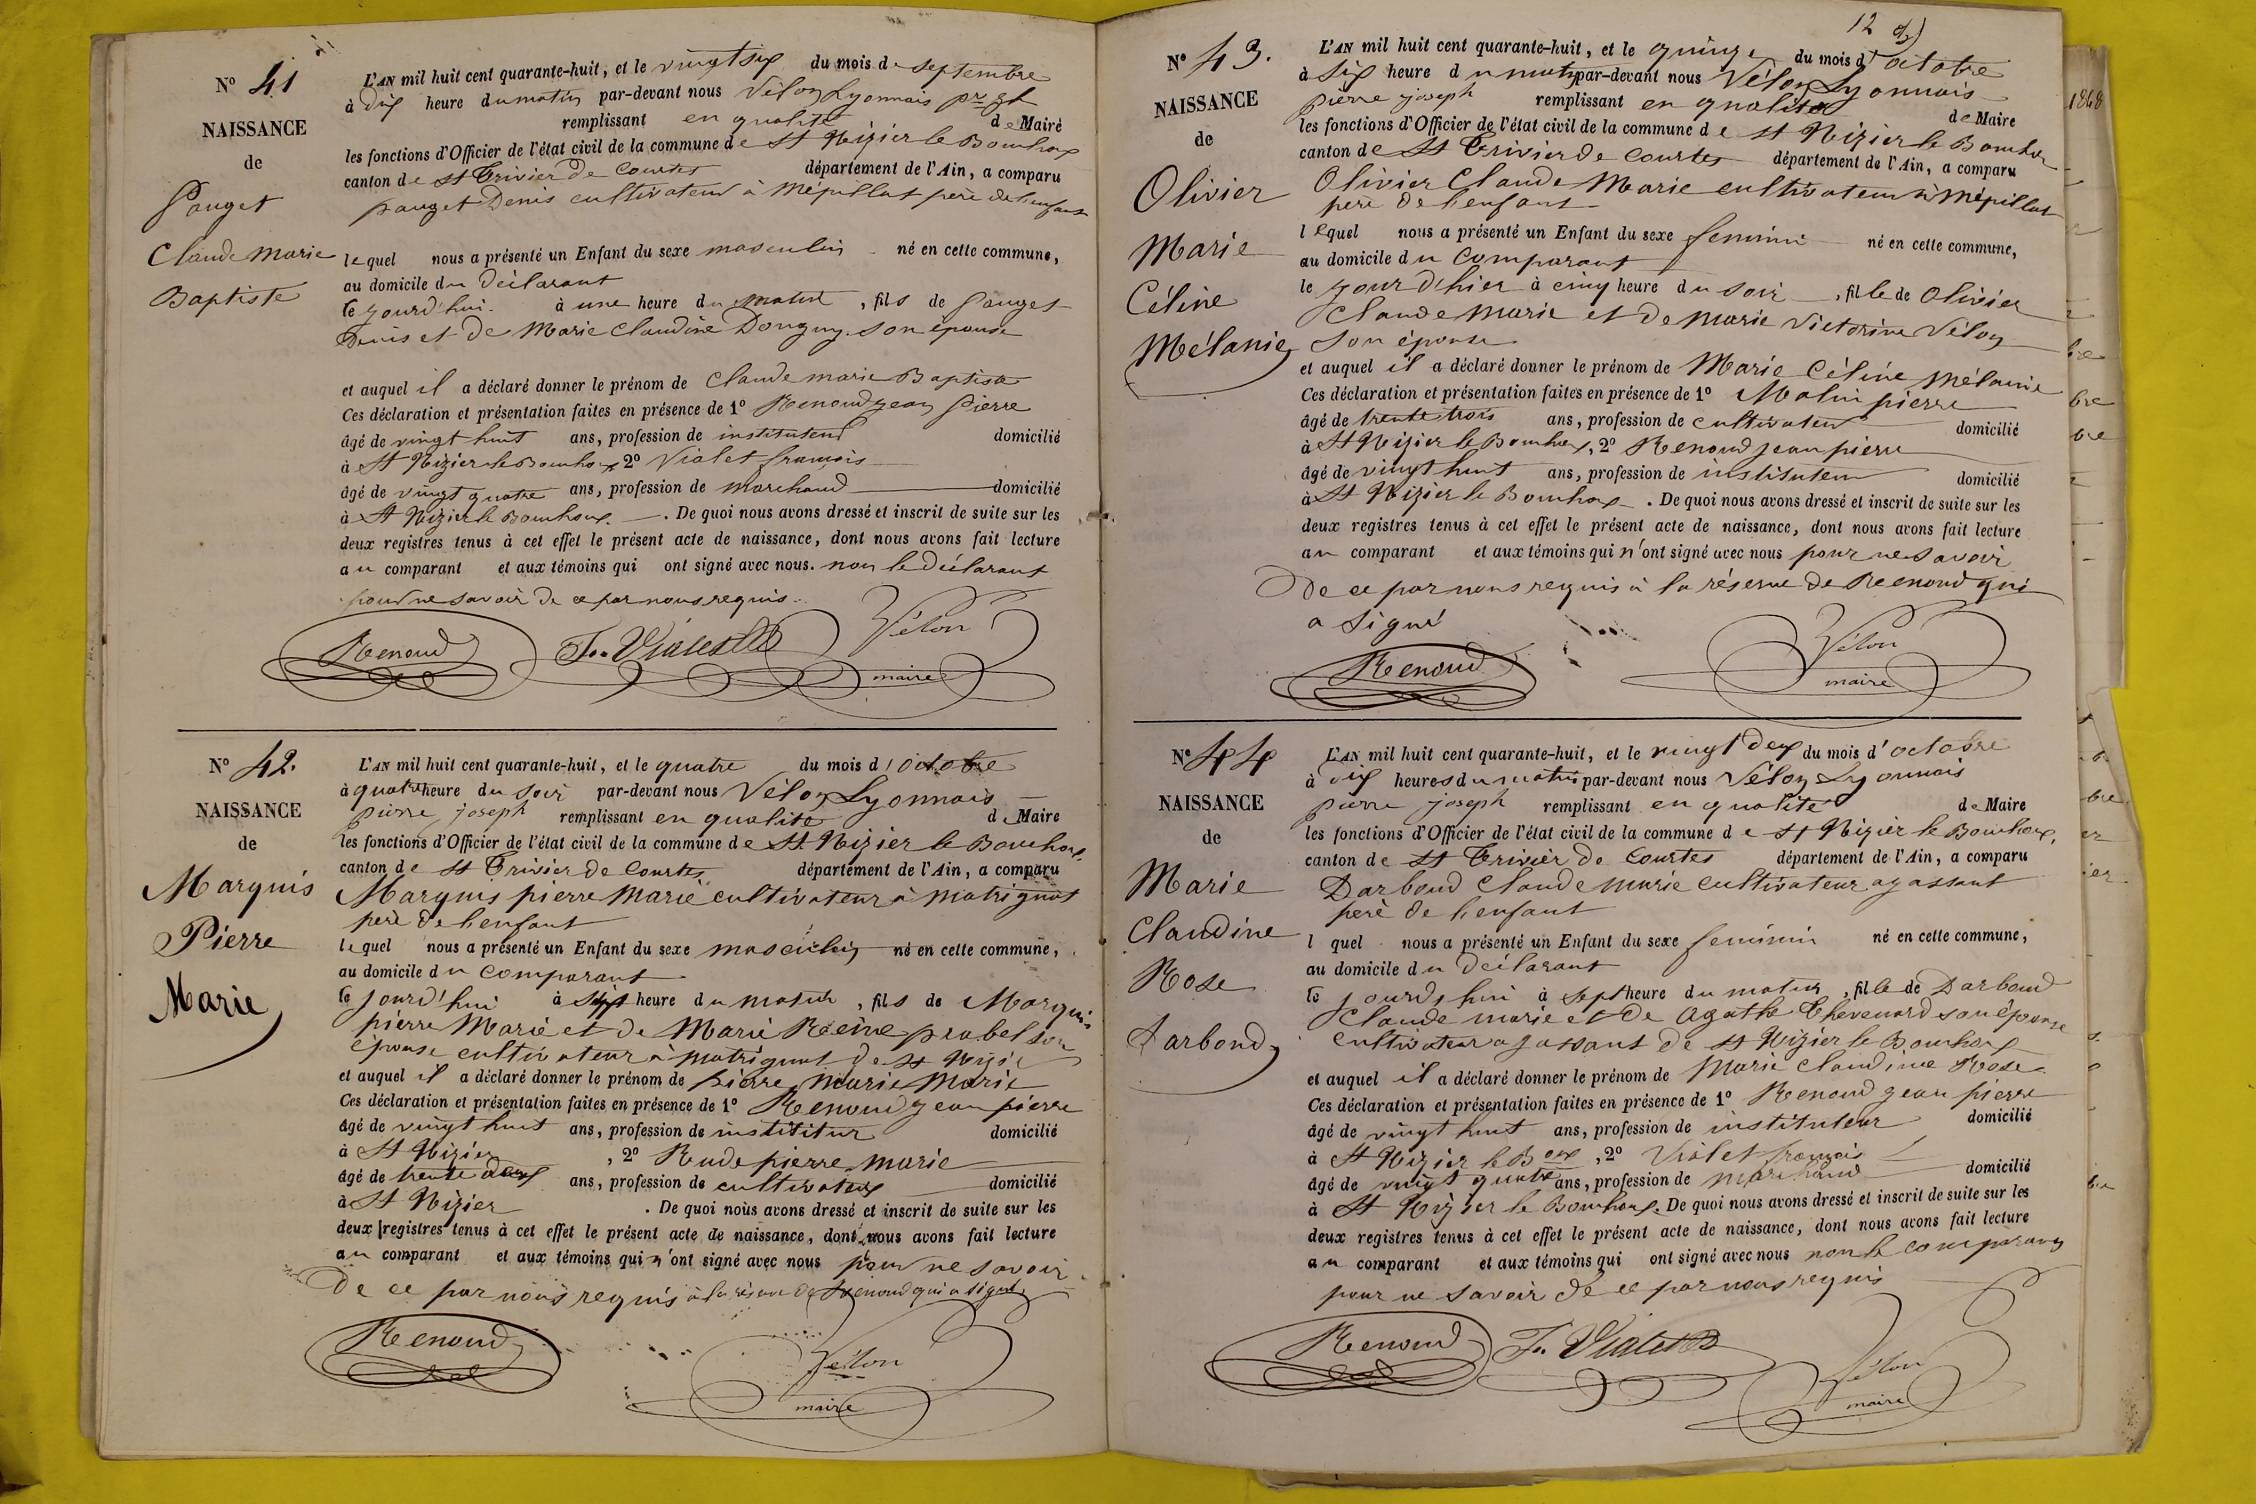 N° 41
NAISSANCE
de
Pauget
Claude Marie
Baptiste
L'AN mil huit cent quarante-huit, et le vingt six du mois de septembre
à dix heure du matin par-devant nous Vélon Lyonnais pre jh
remplissant en qualité de Maire
les fonctions d'Officier de l'état civil de la commune de St Nizier le Bouhoux
canton de St Trivier de Courtes département de l'Ain, a comparu
pauget Denis cultivateur à Mépillat père de l'enfant
lequel nous a présenté un Enfant du sexe masculin né en cette commune,
au domicile du déclarant
le jourd'hui à une heure du matin, fils de Pauget
Denis et de Marie Claudine Donguy son épouse
et auquel il a déclaré donner le prénom de Claude marie Baptiste
Ces déclaration et présentation faites en présence de 1° Renoud jean Pierre
âgé de vingt huit ans, profession de instituteur domicilié
à St Nizier le Bouhoux, 2° Vialet francois
âgé de vingt quatre ans, profession de marchand domicilié
à St Nizier le Bouhoux. De quoi nous avons dressé et inscrit de suite sur les
deux registres tenus à cet effet le présent acte de naissance, dont nous avons fait lecture
au comparant et aux témoins qui ont signé avec nous. non le déclarant
pour ne savoir de ce par nous requis.
Renoud F. Vialet Vélon
maire
N° 42.
NAISSANCE
de
Marquis
Pierre
Marie
L'AN mil huit cent quarante-huit, et le quatre du mois d'octobre
à quatre heure du soir par-devant nous Vélon Lyonnais
pierre joseph remplissant en qualité de Maire
les fonctions d'Officier de l'état civil de la commune de St Nizier le Bouhoux,
canton de St Trivier de Courtes département de l'Ain, a comparu
Marquis pierre Marie cultivateur à Matrignat
père de l'enfant
lequel nous a présenté un Enfant du sexe masculin né en cette commune,
au domicile du comparant
le jourd'hui à sept heure du matin, fils de Marquis
pierre Marie et de Marie Reine prabel son
épouse cultivateur à Matrignat de St Nizier
et auquel il a déclaré donner le prénom de Pierre Marie Marie
Ces déclaration et présentation faites en présence de 1° Renoud jean pierre
âgé de vingt huit ans, profession de instititur domicilié
à St Nizier, 2° Rude pierre marie
âgé de trente deux ans, profession de cultivateur domicilié
à St Nizier. De quoi nous avons dressé et inscrit de suite sur les
deux registres tenus à cet effet le présent acte de naissance, dont nous avons fait lecture
au comparant et aux témoins qui n'ont signé avec nous pour ne savoir
de ce par nous requis à la réserve de Renoud qui a signé,
Renoud Vélon
maire
12
N° 43.
NAISSANCE
de
Olivier
Marie
Céline
Mélanie
L'AN mil huit cent quarante-huit, et le quinze du mois d'octobre
à six heure du matin par-devant nous Vélon Lyonnais
pierre joseph remplissant en qualité de Maire
les fonctions d'Officier de l'état civil de la commune de St Nizier le Bouhoux
canton de St Trivier de Courtes département de l'Ain, a comparu
Olivier Claude Marie cultivateur à Mépillat
père de l'enfant
lequel nous a présenté un Enfant du sexe feminin né en cette commune,
au domicile du comparant
le jour d'hier à cinq heure du soir, fille de Olivier
Claude Marie et de Marie Victorine Vélon
son épouse
et auquel il a déclaré donner le prénom de Marie Céline Mélanie
Ces déclaration et présentation faites en présence de 1° Molin pierre
âgé de trente trois ans, profession de cultivateur domicilié
à St Nizier le Bouhoux, 2° Renoud jean pierre
âgé de vingt huit ans, profession de instituteur domicilié
à St Nizier le Bouhoux. De quoi nous avons dressé et inscrit de suite sur les
deux registres tenus à cet effet le présent acte de naissance, dont nous avons fait lecture
au comparant et aux témoins qui n'ont signé avec nous pour ne savoir
de ce par nous requis à la réserve de Renoud qui
a signé
Renoud Vélon
maire
N° 44
NAISSANCE
de
Marie
Claudine
Rose
Darbond
L'AN mil huit cent quarante-huit, et le vingt deux du mois d'octobre
à dix heures du matin par-devant nous Vélon Lyonnais
pierre joseph remplissant en qualité de Maire
les fonctions d'Officier de l'état civil de la commune de St Nizier le Bouhoux,
canton de St Trivier de Courtes département de l'Ain, a comparu
Darbond Claude marie cultivateur a jassant
père de l'enfant
l quel nous a présenté un Enfant du sexe feminin né en cette commune,
au domicile du déclarant
le jourd'hui à sept heure du matin, fille de Darbond
Claude marie et de Agathe Thevenard son épouse
cultivateur a jassant de St Nizier le Bouhoux
et auquel il a déclaré donner le prénom de Marie Claudine Rose
Ces déclaration et présentation faites en présence de 1° Renoud jean pierre
âgé de vingt huit ans, profession de instituteur domicilié
à St Nizier le Boux, 2° Vialet françois
âgé de vingt quatre ans, profession de marchand domicilié
à St Nizier le Bouhoux. De quoi nous avons dressé et inscrit de suite sur les
deux registres tenus à cet effet le présent acte de naissance, dont nous avons fait lecture
au comparant et aux témoins qui ont signé avec nous non le comparant
pour ne savoir de ce par nous requis
Renoud F. Vialet Vélon
maire